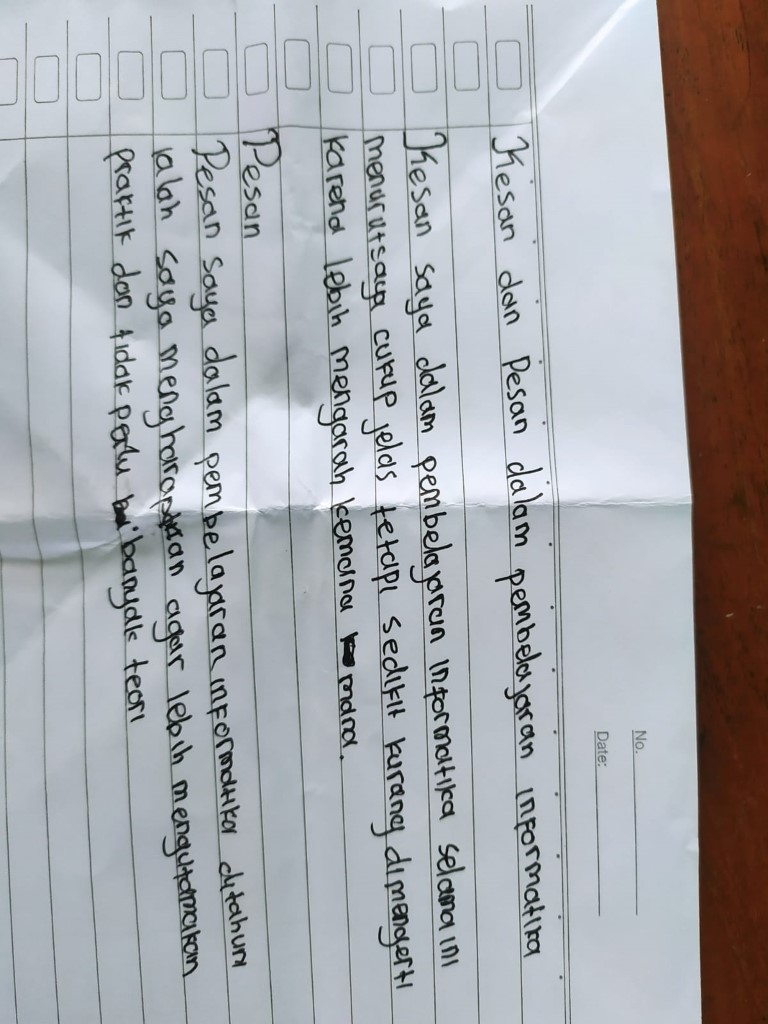 No.
Date:
Kesan dan Pesan dalam pembelajaran informatika
Kesan saya dalam pembelajaran informatika selama ini
menurut saya cukup jelas tetapi sedikit kurang dimengerti
karena lebih mengarah kemana mana.
Pesan
Pesan saya dalam pembelajaran informatika ditahun
ialah saya mengharapkan agar lebih mengutamakan
praktik dan tidak perlu banyak teori